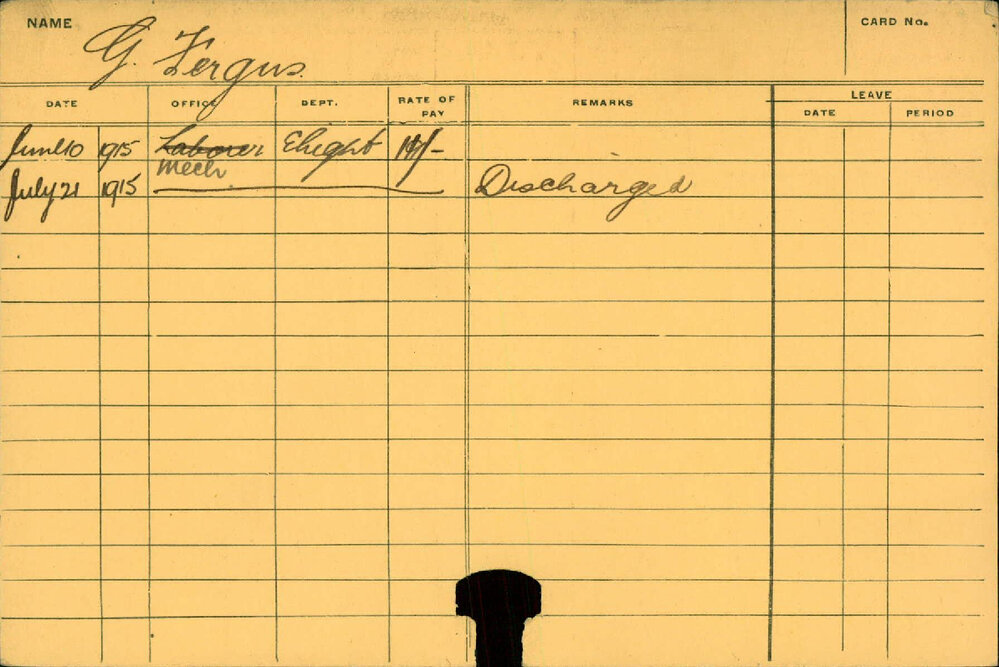 NAME G. Fergus CARD No.
DATE OFFICE DEPT. RATE OF PAY REMARKS LEAVE
DATE PERIOD
June 10 1915 Labourer Elight
Mech
July 21 1915 Discharged